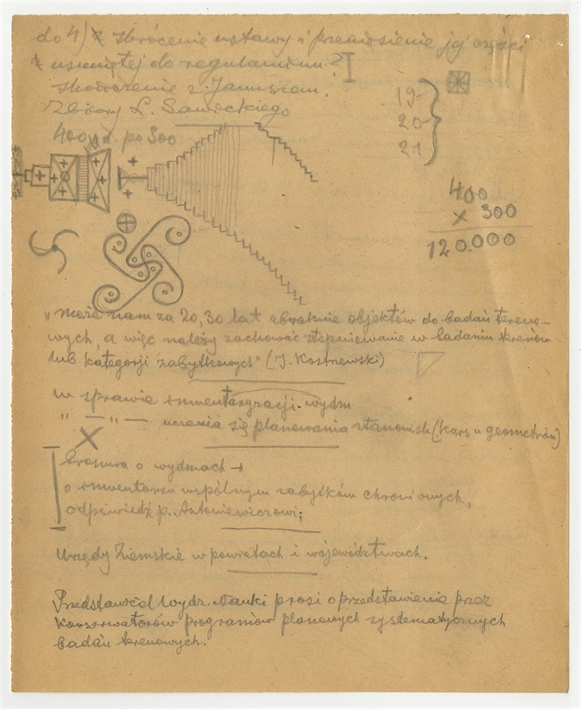 do 4) skrócenie ustawy i przeniesienie jej części
usuniętej do regulaminu?
skowożenie z Jamiszem.
Zbiory L. Sawickiego
400 zł. po 300
19-
20-
21-
400
x 300
120.000
"może nam za 20, 30 lat zbraknie objektów do badań tereno-
wych, a więc należy zachować wstrzymanie w badaniu terenów
lub kategorji zabytkowych" (J. Kostrzewski)
w sprawie inwentaryzacji wydm
" — " — uczenia się planowania stanowisk (kurs u geometrów)
broszura o wydmach →
o inwentarzu wspólnym zabytków chronionych,
odpowiedź p. Antoniewiczowi;
Urzędy Ziemskie w powiatach i województwach.
Przedstawiciel Wydz. Nauki prosi o przedstawienie przez
Konserwatorów programów planowych systematycznych
badań terenowych.